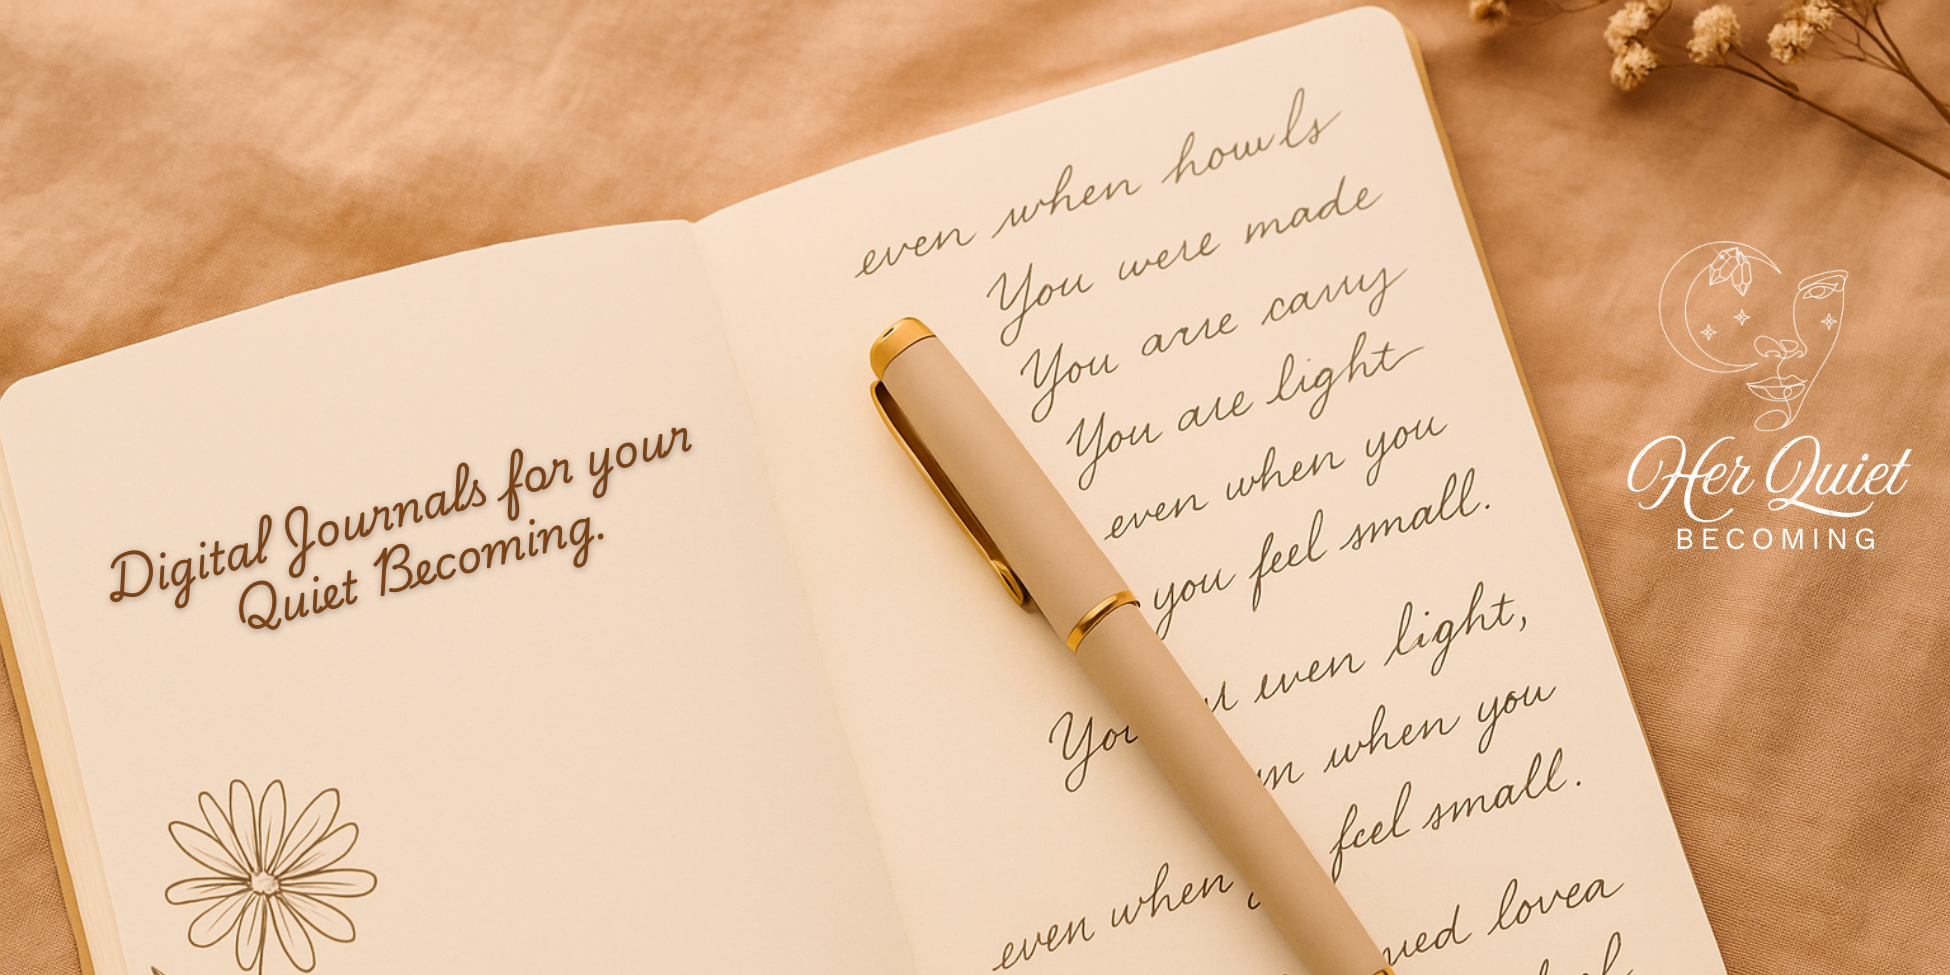 Digital Journals for your
Quiet Becoming.
even when howls
You were made
You arre carry
You are light
even when you
you feel small.
even light,
when you
feel small.
even when
lovea
Her Quiet
BECOMING